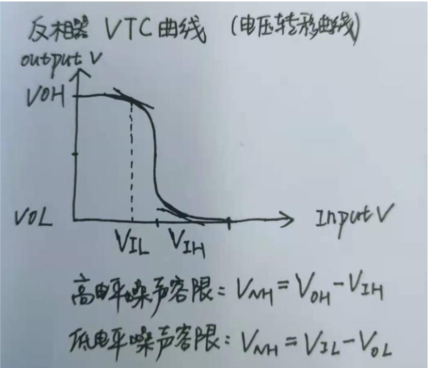 反相器 VTC曲线 (电压转移曲线)
output V
VOH
VOL
VIL VIH
Input V
高电平噪声容限: VNH = VOH - VIH
低电平噪声容限: VNH = VIL - VOL